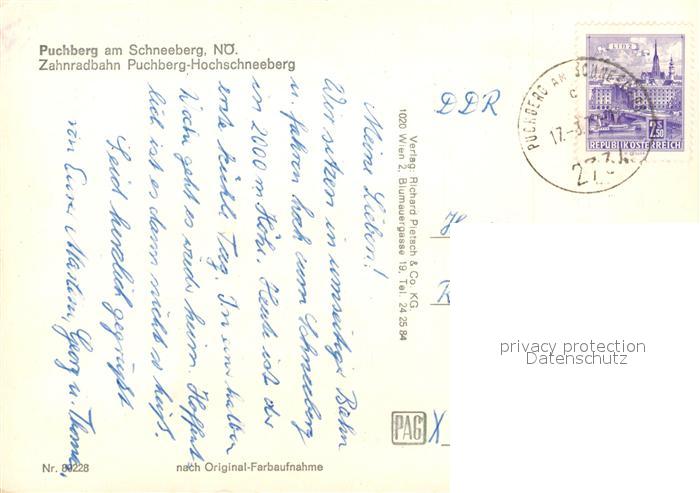 Puchberg am Schneeberg, NÖ.
Zahnradbahn Puchberg-Hochschneeberg
Meine Lieben!
Wir sitzen in umseitiger Bahn
u. fahren hoch zum Schneeberg
in 2000 m Höhe. Heute ist der
erste kühle Tag. In einer halben
Woche geht es wieder heim. Hoffentl.
lich ist es dann nicht so heiß.
Seid herzlich gegrüßt
von Eurer Martina, Georg u. Thomas
Verlag: Richard Pietsch & Co. KG.
1020 Wien 2, Blumauergasse 19, Tel. 24 25 84
DDR
LINZ
S 2.50
REPUBLIK ÖSTERREICH
PUCHBERG AM SCHNEEBERG
PAG
X
privacy protection
Datenschutz
Nr. 89228
nach Original-Farbaufnahme